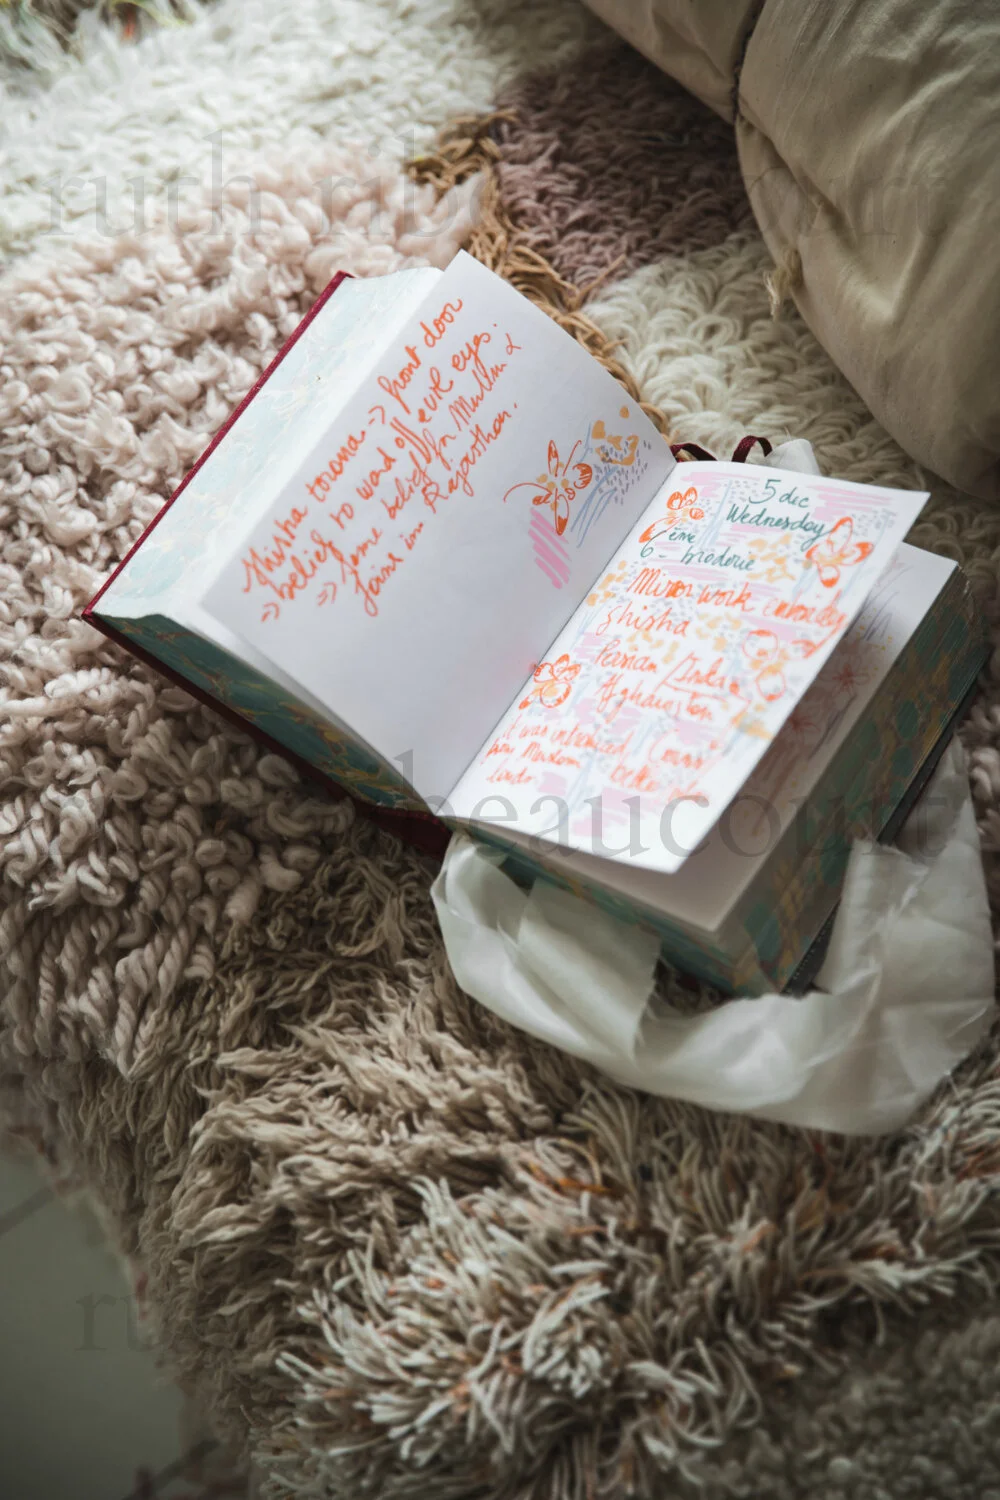 Shisha torana -> front door
=> belief to ward off evil eyes.
=> Same belief for Muslim &
Jaine in Rajasthan.
5 dec
Wednesday
6ème broderie
Mirror work embroidery
Shisha
Persian / India
Afghanistan
it was introduced
from Muslim
ruth ribeaucourt
beaucourt